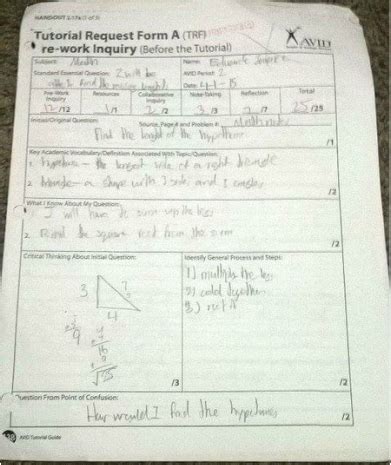 HANDOUT
Tutorial Request Form A (TRF)
re-work Inquiry (Before the Tutorial)
AVID
Subject: Math
Name:
Standard/Essential Question: I will be
AVID Period: 2
able to find the
Date:
Pre-Work Inquiry
Resources
Collaborative Inquiry
Note-Taking
Reflection
Total
12/12
1/1
2/2
3/3
/7
25/25
Initial/Original Question:
Source, Page # and Problem #: Math notes
Find the length of the hypotenuse
/1
Key Academic Vocabulary/Definition Associated With Topic/Question:
1. - the longest side of a right triangle
2. - a shape with 3 side and 3 angles
/2
What I Know About My Question:
1. I will have to sum up the legs
2. Find the square root from the sum
/2
Critical Thinking About Initial Question:
Identify General Process and Steps:
1) multiply the leg
2) add together
3) root it
3
?
4
9
16
√25
/3
/2
Question From Point of Confusion:
How would I find the
/2
AVID Tutorial Guide